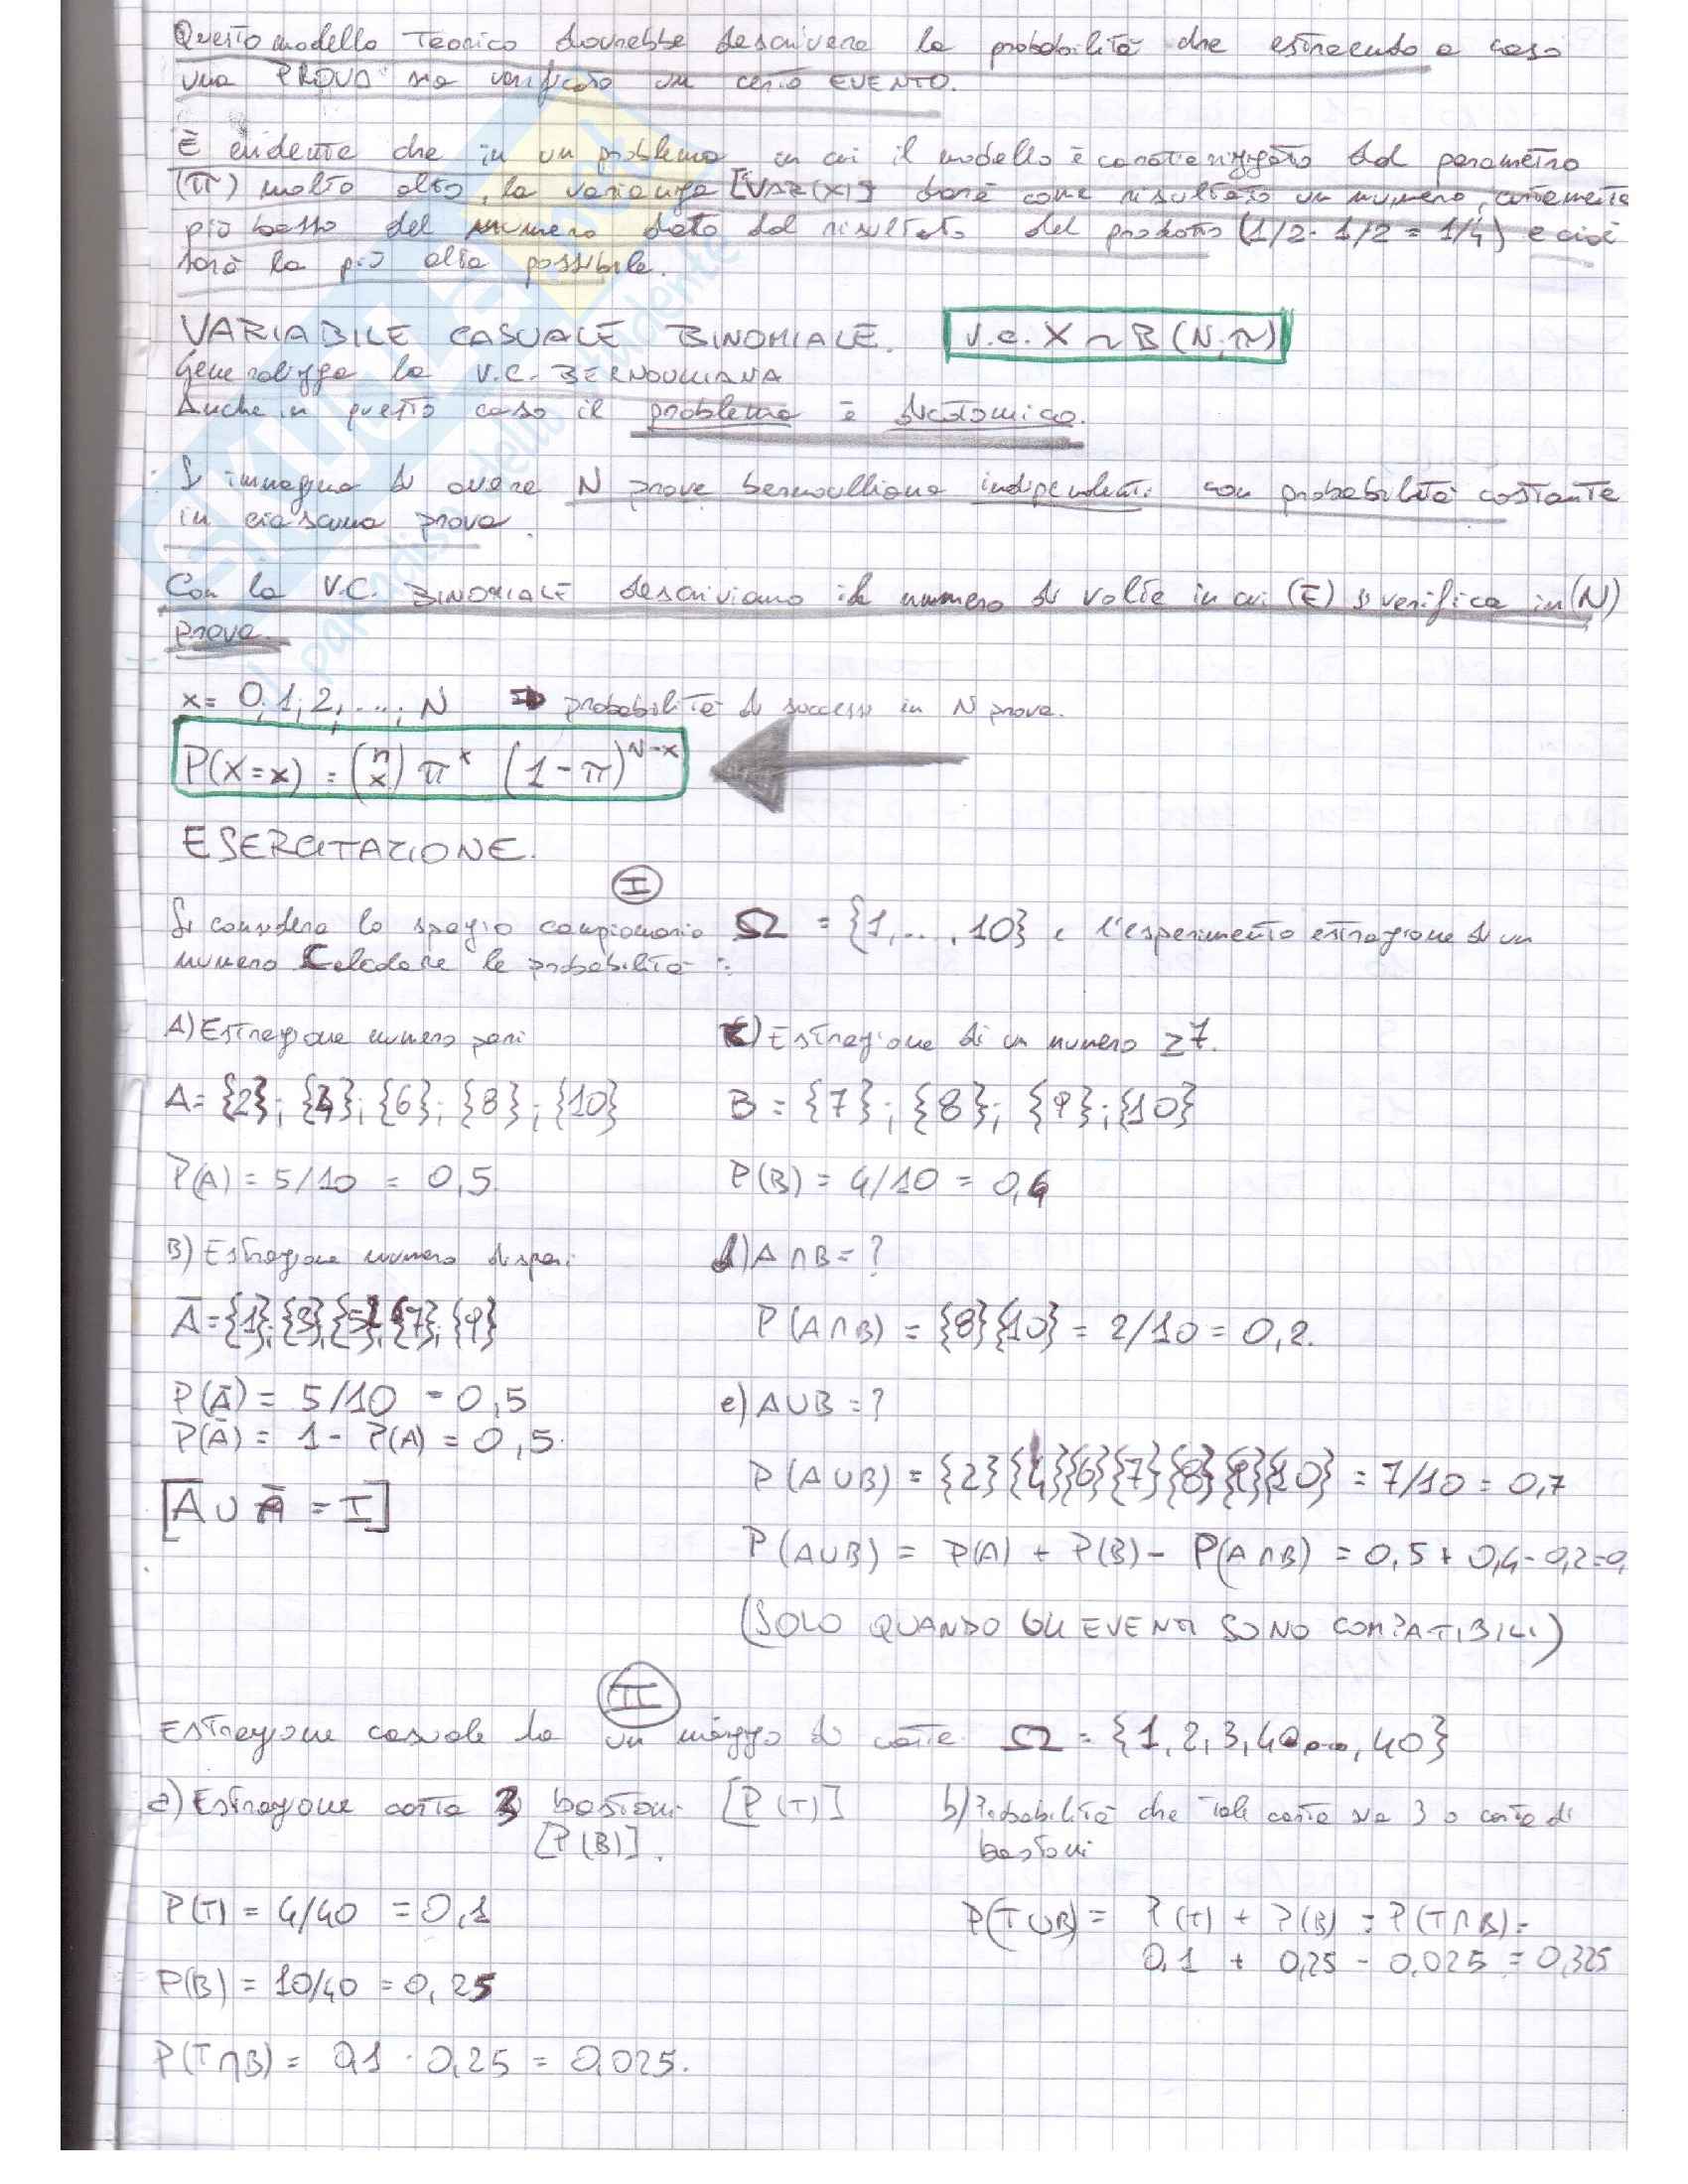 Questo modello teorico dovrebbe descrivere la probabilità che estraendo a caso
una PROVA sia verificato un certo EVENTO.
È evidente che in un problema in cui il modello è caratterizzato dal parametro
(π) molto alto, la varianza [VAR(X)] darà come risultato un numero, certamente
più basso del numero dato dal risultato del prodotto (1/2 · 1/2 = 1/4) e cioè
sarà la più alta possibile.
VARIABILE CASUALE BINOMIALE. V.C. X ~ B (N, π)
Generalizza la V.C. BERNOULLIANA
Anche in questo caso il problema è dicotomico.
Si immagina di avere N prove bernoulliane indipendenti con probabilità costante
in ciascuna prova.
Con la V.C. BINOMIALE descriviamo il numero di volte in cui (E) si verifica in (N)
prove.
x = 0, 1, 2, ..., N ⇒ probabilità di successi in N prove.
P(X=x) = (n x) π^x (1-π)^N-x
ESERCITAZIONE.
I
Si considera lo spazio campionario Ω = {1, ..., 10} e l'esperimento estrazione di un
numero Calcolare le probabilità:
A) Estrazione numero pari
A = {2}; {4}; {6}; {8}; {10}
P(A) = 5/10 = 0,5.
B) Estrazione numero dispari
Ā = {1}; {3}; {5}; {7}; {9}
P(Ā) = 5/10 = 0,5
P(Ā) = 1 - P(A) = 0,5.
[A ∪ Ā = I]
c) Estrazione di un numero ≥7.
B = {7}; {8}; {9}; {10}
P(B) = 4/10 = 0,4
d) A∩B = ?
P(A∩B) = {8}{10} = 2/10 = 0,2.
e) A∪B = ?
P(A∪B) = {2}{4}{6}{7}{8}{9}{10} = 7/10 = 0,7
P(A∪B) = P(A) + P(B) - P(A∩B) = 0,5 + 0,4 - 0,2 = 0,
(SOLO QUANDO GLI EVENTI SONO COMPATIBILI)
II
Estrazione casuale da un mazzo di carte Ω = {1, 2, 3, 4, ..., 40}
a) Estrazione carta 3 bastoni [P(T)]
[P(B)].
P(T) = 4/40 = 0,1
P(B) = 10/40 = 0,25
P(T∩B) = 0,1 · 0,25 = 0,025.
b) Probabilità che tale carta sia 3 o carta di
bastoni
P(T∪B) = P(T) + P(B) - P(T∩B) =
0,1 + 0,25 - 0,025 = 0,325